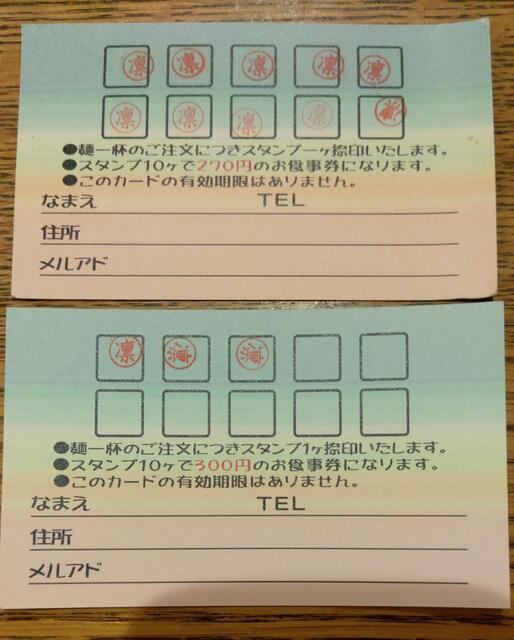 凛 凛 凛 凛 凛
凛 凛 凛 凛 凛
●麺一杯のご注文につきスタンプ一ヶ捺印いたします。
●スタンプ10ヶで270円のお食事券になります。
●このカードの有効期限はありません。
なまえ TEL
住所
メルアド
凛 凛 凛
●麺一杯のご注文につきスタンプ1ヶ捺印いたします。
●スタンプ10ヶで300円のお食事券になります。
●このカードの有効期限はありません。
なまえ TEL
住所
メルアド